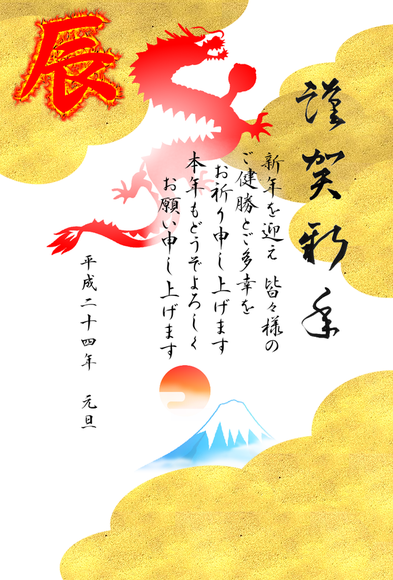 辰
謹賀新年
新年を迎え 皆々様の
ご健勝とご多幸を
お祈り申し上げます
本年もどうぞよろしく
お願い申し上げます
平成二十四年 元旦